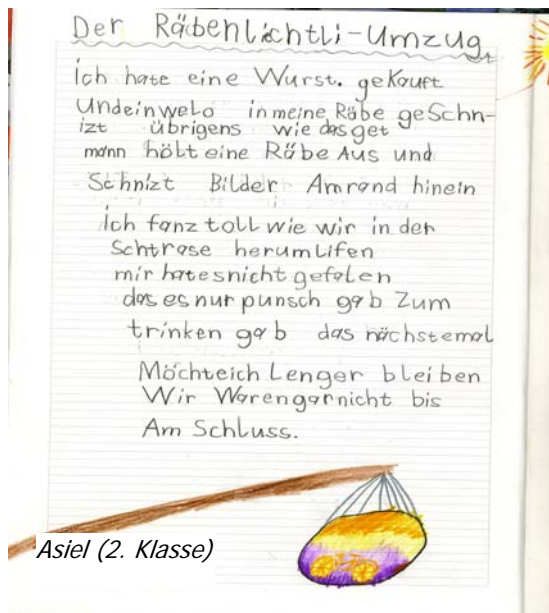 Der Räbenlichtli-Umzug
ich hate eine Wurst. gekauft
Undeinwelo in meine Räbe geSchn-
izt übrigens wie das get
mann hölt eine Räbe Aus und
Schnizt Bilder Amrand hinein
ich fanz toll wie wir in der
Schtrase herumlifen
mir hatesnicht gefalen
das es nur punsch gab Zum
trinken gab das nächstemal
Möchteich Lenger bleiben
Wir Warengarnicht bis
Am Schluss.
Asiel (2. Klasse)